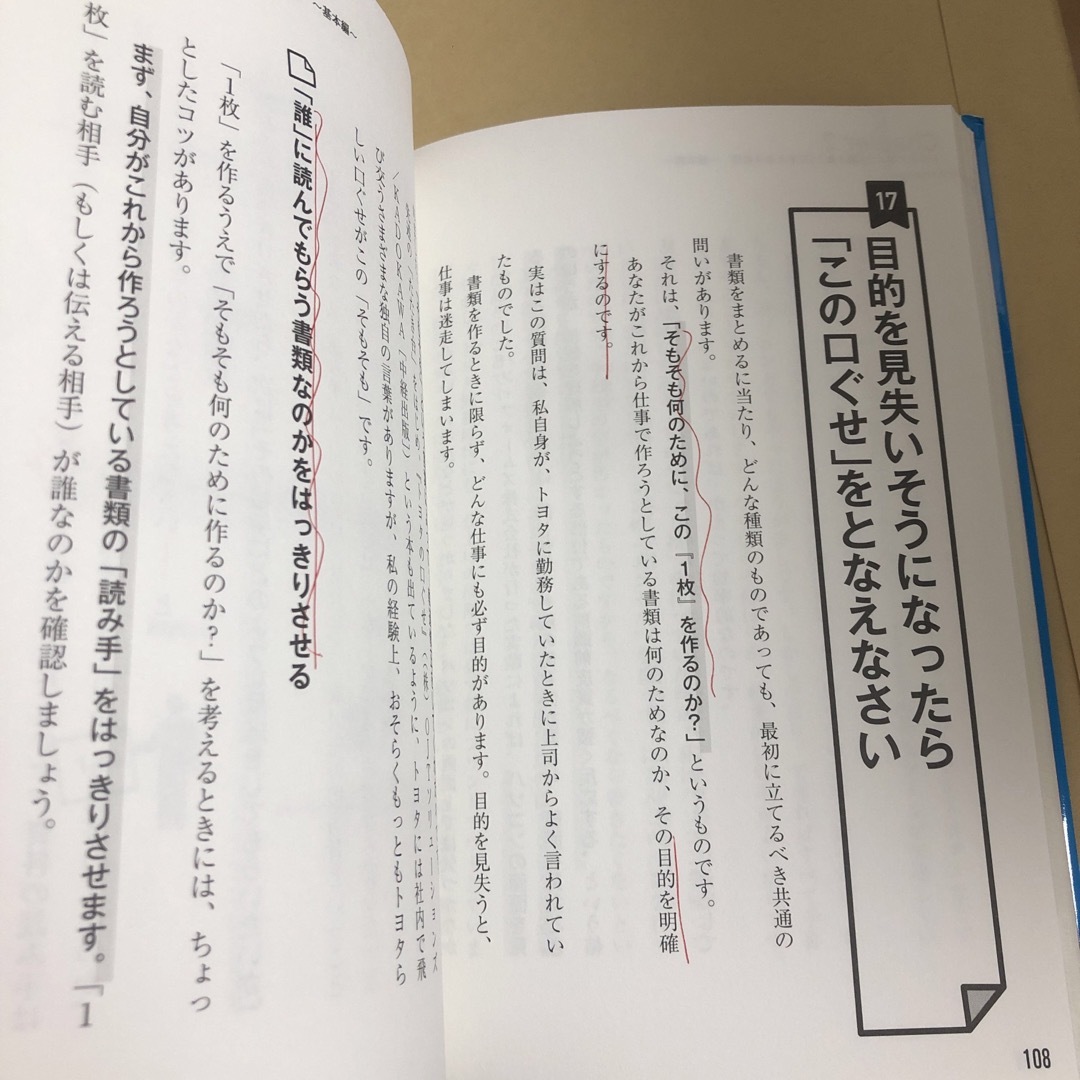 17
目的を見失いそうになったら
「この口ぐせ」をとなえなさい
書類をまとめるに当たり、どんな種類のものであっても、最初に立てるべき共通の
問いがあります。
それは、「そもそも何のために、この『1枚』を作るのか？」というものです。
あなたがこれから仕事で作ろうとしている書類は何のためなのか、その目的を明確
にするのです。
実はこの質問は、私自身が、トヨタに勤務していたときに上司からよく言われてい
たものでした。
書類を作るときに限らず、どんな仕事にも必ず目的があります。目的を見失うと、
仕事は迷走してしまいます。
108
〜基本編〜
をはじめ、『トヨタの口ぐせ』（（株）OJTソリューションズ
／KADOKAWA「中経出版」）という本も出ているように、トヨタには社内で飛
び交うさまざまな独自の言葉がありますが、私の経験上、おそらくもっともトヨタら
しい口ぐせがこの「そもそも」です。
「誰」に読んでもらう書類なのかをはっきりさせる
「1枚」を作るうえで「そもそ何のために作るのか？」を考えるときには、ちょっ
としたコツがあります。
まず、自分がこれから作ろうとしている書類の「読み手」をはっきりさせます。「1
枚」を読む相手（もしくは伝える相手）が誰なのかを確認しましょう。